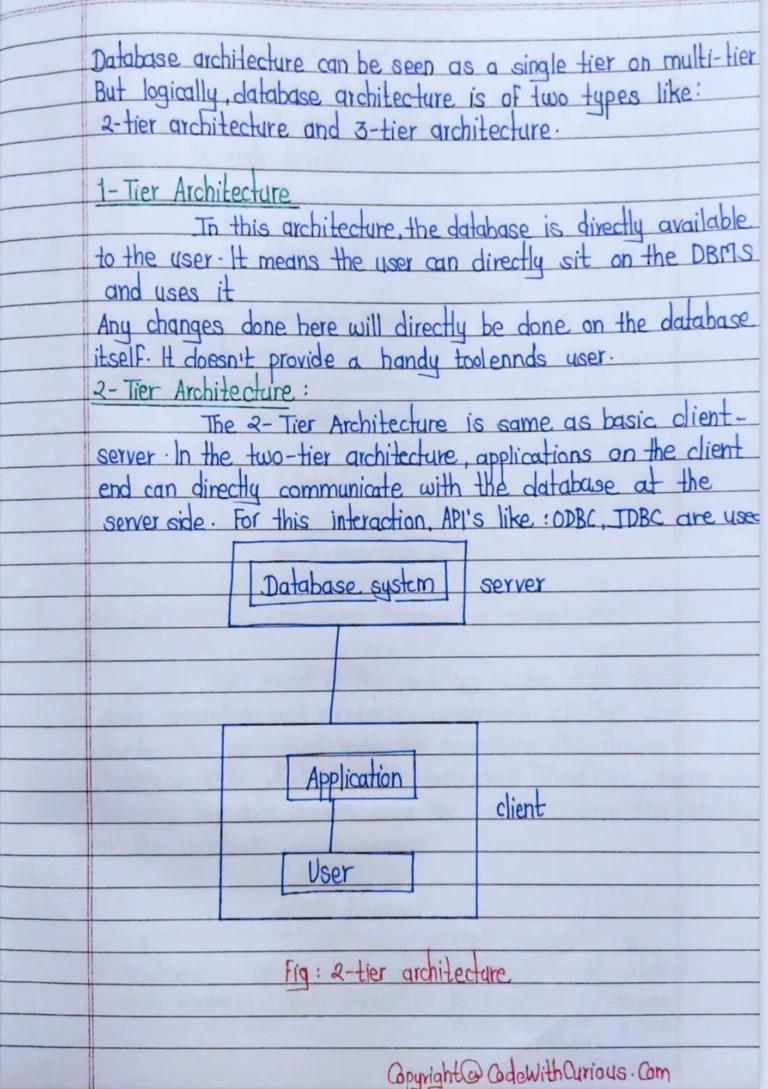 Database architecture can be seen as a single tier on multi-tier
But logically, database architecture is of two types like:
2-tier architecture and 3-tier architecture.
1-Tier Architecture
In this architecture, the database is directly available
to the user. It means the user can directly sit on the DBMS
and uses it
Any changes done here will directly be done on the database
itself. It doesn't provide a handy toolennds user.
2-Tier Architecture:
The 2-Tier Architecture is same as basic client-
server. In the two-tier architecture, applications on the client
end can directly communicate with the database at the
server side. For this interaction, API's like : ODBC, JDBC are used
Database system
server
Application
client
User
Fig : 2-tier architecture
Copyright@ CodeWithCurious.Com